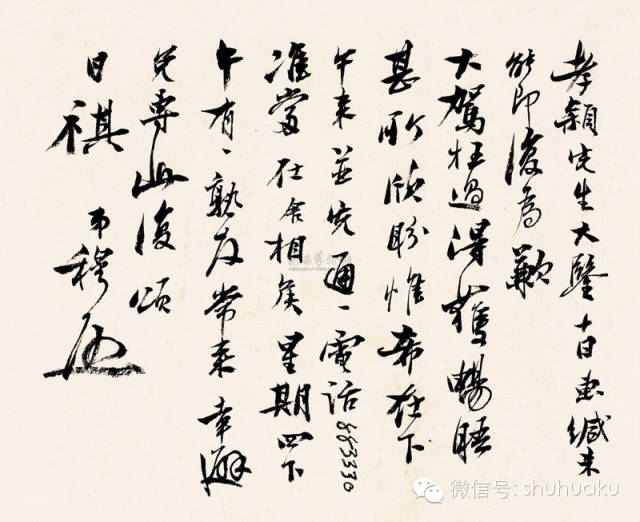 孝穎先生大鑒十日惠緘未
能即復為歉
大駕枉過得獲暢晤
甚所欣盼惟希在下
午來並先通一電話883330
准當在舍相矣星期四下
午有一熟友常來幸避
免專此復頌
日祺
弟穆
微信号: shuhuaku